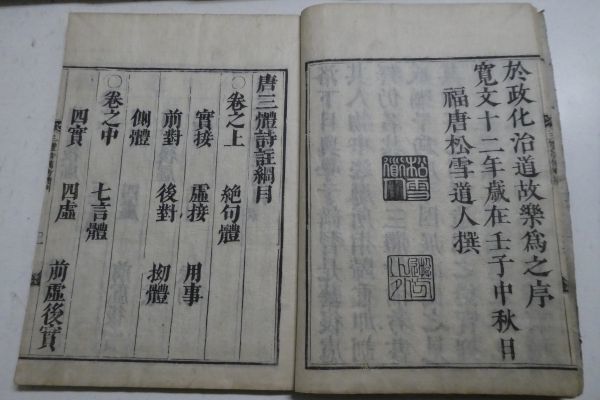 於政化治道故樂為之序
寬文十二年歲在壬子中秋日
福唐松雪道人撰
唐三體詩註綱目
○卷之上 絶句體
實接 虛接 用事
前對 後對 拗體
側體
○卷之中 七言體
四實 四虛 前虛後實